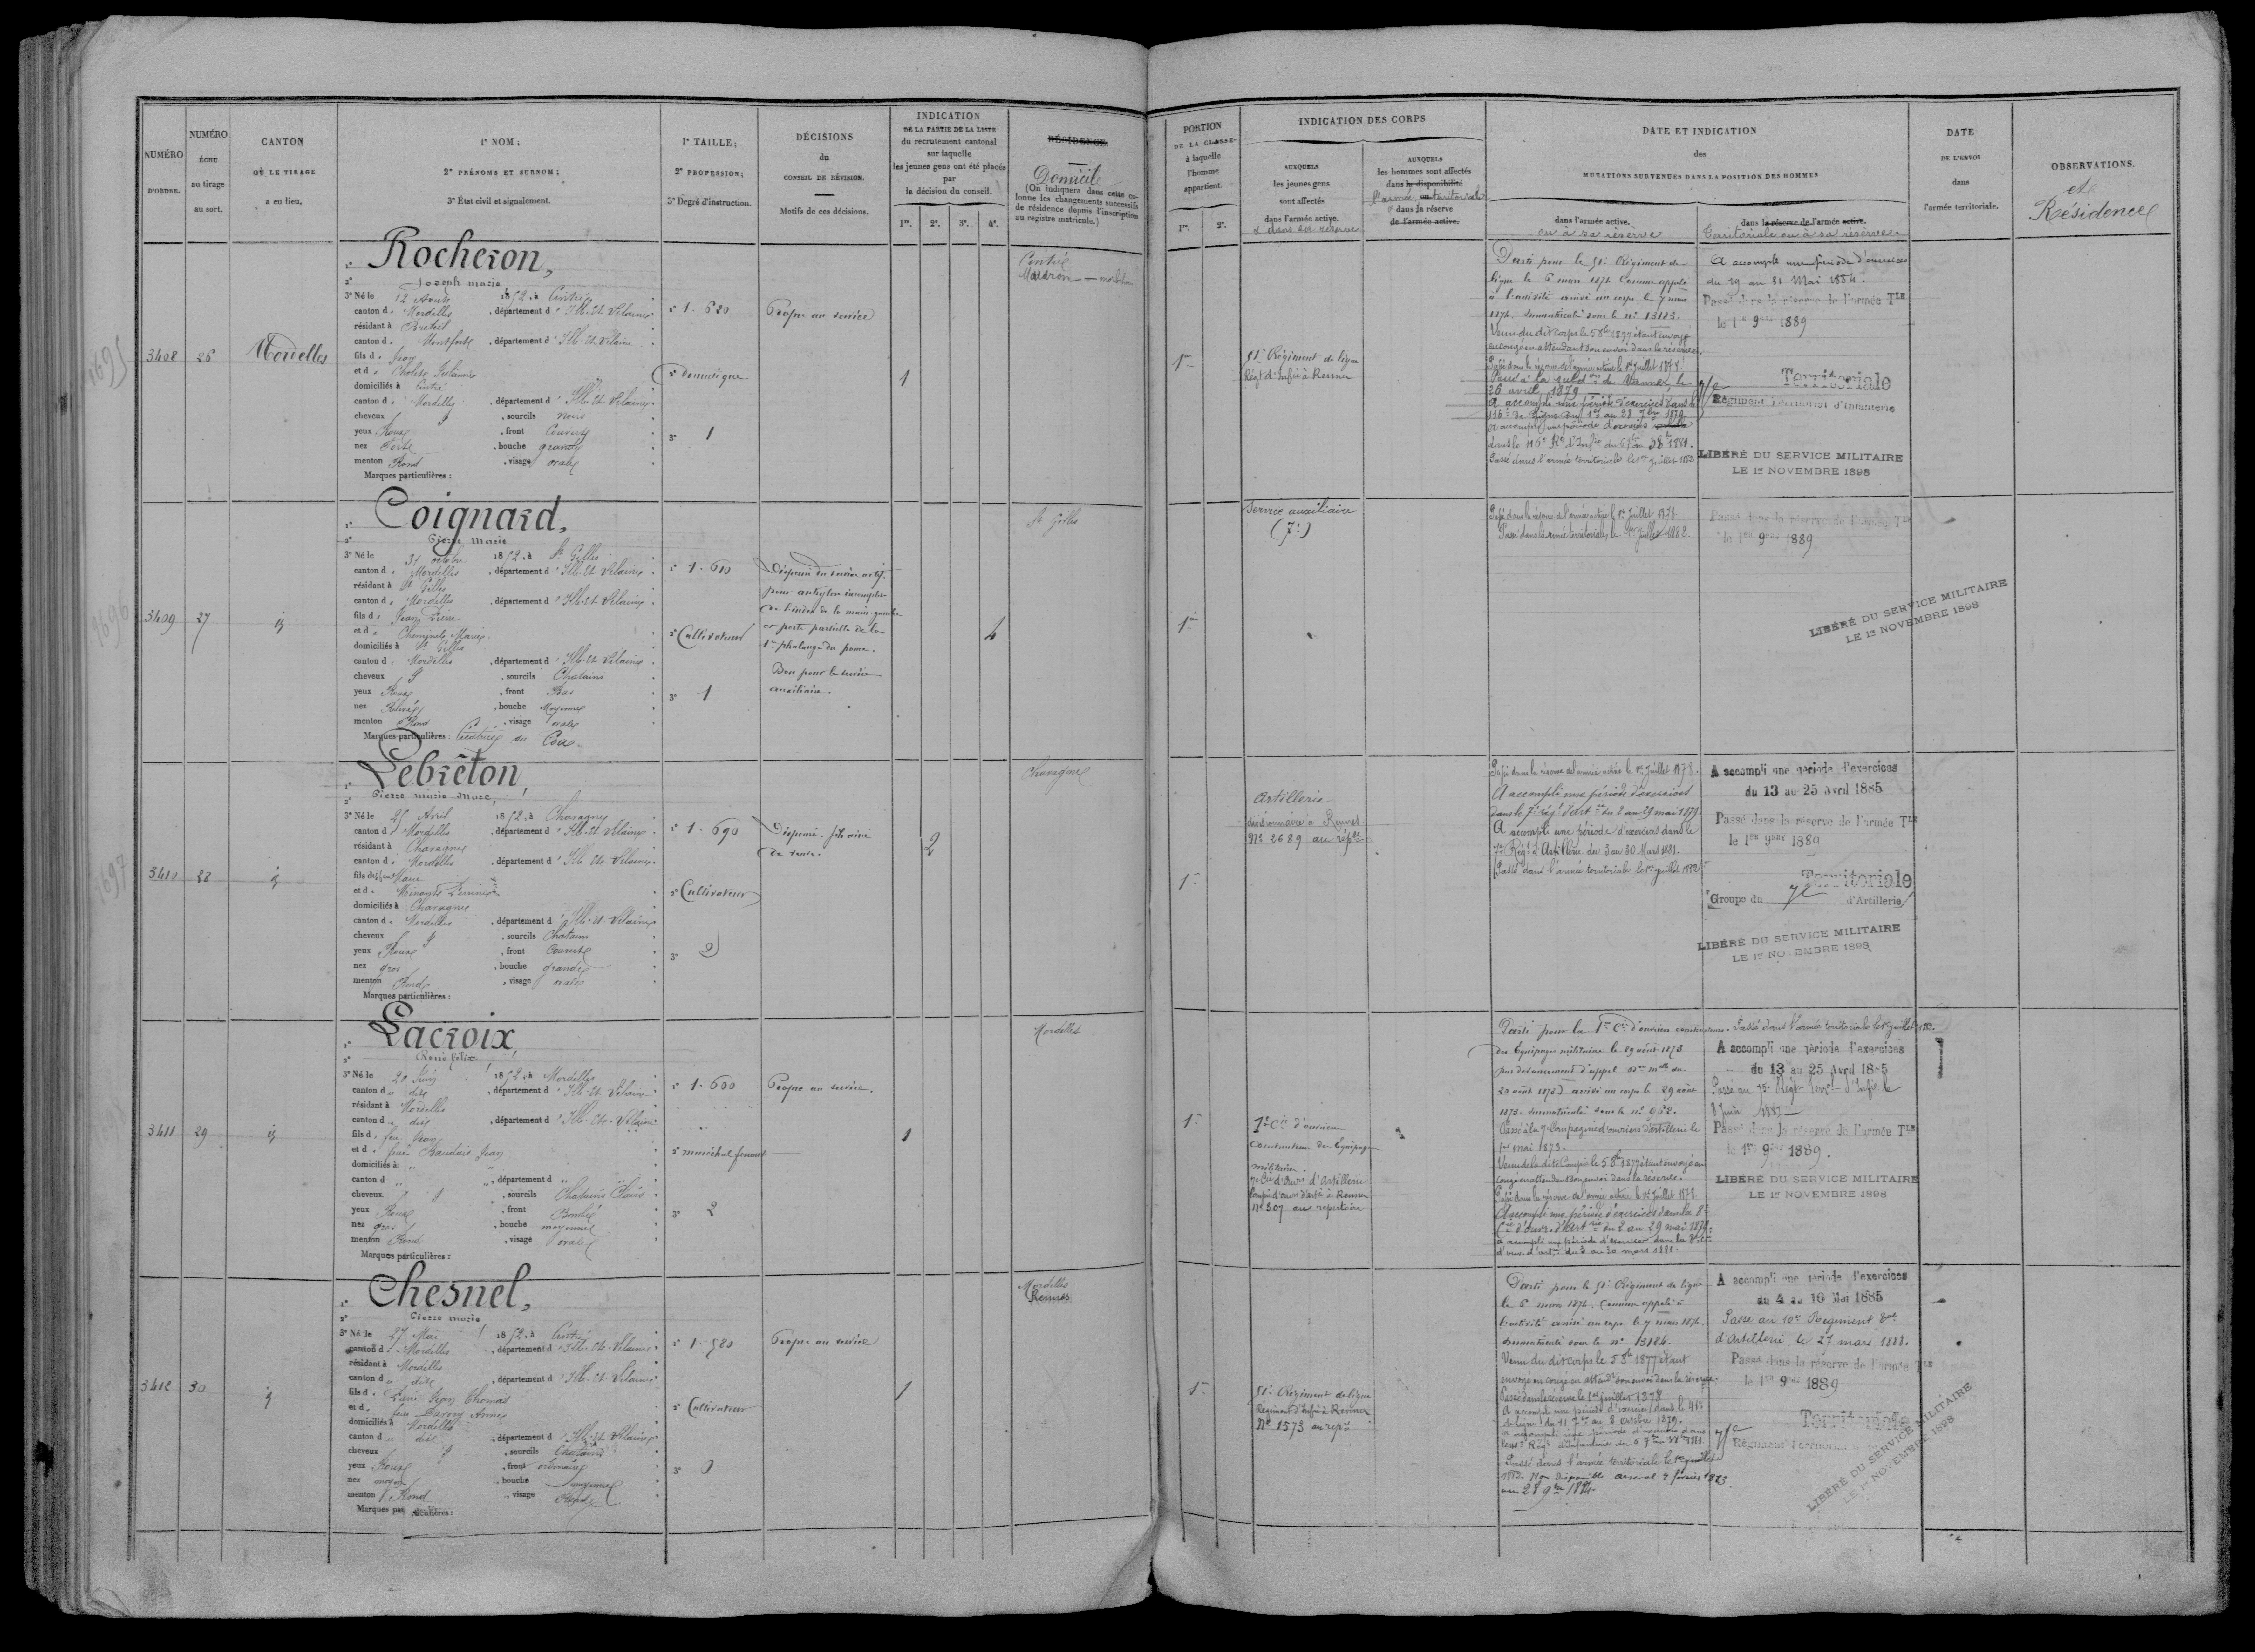 NUMÉRO
D'ORDRE.
NUMÉRO
ÉCHU
au tirage
au sort.
CANTON
OÙ LE TIRAGE
a eu lieu.
1° NOM;
2° PRÉNOMS ET SURNOM;
3° État civil et signalement.
1° TAILLE;
2° PROFESSION;
3° Degré d'instruction.
DÉCISIONS
du
CONSEIL DE RÉVISION.
Motifs de ces décisions.
INDICATION
DE LA PARTIE DE LA LISTE
du recrutement cantonal
sur laquelle
les jeunes gens ont été placés
par
la décision du conseil.
1re. 2e. 3e. 4e.
RÉSIDENCE.
Domicile
(On indiquera dans cette co-
lonne les changements successifs
de résidence depuis l'inscription
au registre matricule.)
PORTION
DE LA CLASSE
à laquelle
l'homme
appartient.
1re. 2e.
INDICATION DES CORPS
AUXQUELS
les jeunes gens
sont affectés
dans l'armée active.
& dans sa réserve
AUXQUELS
les hommes sont affectés
dans la disponibilité
l'armée territoriale
dans la réserve
de l'armée active.
DATE ET INDICATION
des
MUTATIONS SURVENUES DANS LA POSITION DES HOMMES
dans l'armée active.
ou à sa réserve
dans la réserve de l'armée active.
Territoriale ou à sa réserve.
DATE
DE L'ENVOI
dans
l'armée territoriale.
OBSERVATIONS.
et
Résidence
1695
3408
26
Mordelles
1° Rocheron,
2° Joseph marie
3° Né le 12 Août 1852, à Cintré
canton d. Mordelles, département d'Ille-et-Vilaine
résidant à Breteil
canton d. Montfort, département d'Ille-et-Vilaine
fils d. Jean
et d.
domiciliés à Cintré
canton d. Mordelles, département d'Ille-et-Vilaine
cheveux, sourcils noirs
yeux Roux, front Couvert
nez Forte, bouche grande
menton Rond, visage ovale
Marques particulières:
1° 1.620
2° Domestique
3° 1
Propre au service
1
Cintré
1re
51e Régiment de ligne
Régt d'infie à Rennes
Parti pour le 51e Régiment de
ligne le 6 mars 1874 Comme appelé
à l'activité arrivé au corps le 7 mars
1874. Immatriculé sous le n° 13183.
Venu du dit Corps le 5 8bre 1877 étant envoyé
en congé en attendant son envoi dans la réserve.
Passé dans la réserve de l'armée active le 1er Juillet 1878.
Passé à la subdon de Vannes le
26 avril 1879
A accompli une période d'exercices dans le
116e de ligne du 1er au 28 7bre 1879.
A accompli une période d'exercices
dans le 116e Rt d'Infie du 5 7bre au 3 8bre 1881.
Passé dans l'armée territoriale le 1er Juillet 1883
A accompli une période d'exercices
du 19 au 31 Mai 1884.
Passé dans la réserve de l'armée Tle
le 1er 9bre 1889
Territoriale
Régiment Territorial d'Infanterie
LIBÉRÉ DU SERVICE MILITAIRE
LE 1er NOVEMBRE 1898
1696
3409
27
id
1° Coignard,
2° Pierre Marie
3° Né le 31 octobre 1852, à St Gilles
canton d. Mordelles, département d'Ille-et-Vilaine
résidant à St Gilles
canton d. Mordelles, département d'Ille-et-Vilaine
fils d. Jean Pierre
et d. Marie
domiciliés à St Gilles
canton d. Mordelles, département d'Ille-et-Vilaine
cheveux, sourcils Chatains
yeux Roux, front Bas
nez Relevé, bouche Moyenne
menton Rond, visage ovale
Marques particulières: Cicatrice au Cou.
1° 1.610
2° Cultivateur
3° 1
Dispensé du service actif
pour ankylose incomplète
de l'index de la main gauche
et perte partielle de la
1re phalange du pouce.
Bon pour le service
auxiliaire.
4
St Gilles
1re
Service auxiliaire
(7e)
Passé dans la réserve de l'armée active le 1er Juillet 1878
Passé dans l'armée territoriale le 1er Juillet 1882.
Passé dans la réserve de l'armée Tle
le 1er 9bre 1889
LIBÉRÉ DU SERVICE MILITAIRE
LE 1er NOVEMBRE 1898
1697
3410
28
id
1° Lebreton,
2° Pierre marie Marc,
3° Né le 25 Avril 1852, à Chavagne
canton d. Mordelles, département d'Ille-et-Vilaine
résidant à Chavagne
canton d. Mordelles, département d'Ille-et-Vilaine
fils de
et d. Perrine
domiciliés à Chavagne
canton d. Mordelles, département d'Ille-et-Vilaine
cheveux, sourcils Chatains
yeux Roux, front Couvert
nez gros, bouche grande
menton Rond, visage ovale
Marques particulières:
1° 1.690
2° Cultivateur
3° 2
Dispensé. fils aîné
de veuve.
2
Chavagne
1re
Artillerie
divisionnaire à Rennes
N° 2689 au répre
Passé dans la réserve de l'armée active le 1er Juillet 1878.
A accompli une période d'exercices
dans le 7e régt d'artie du 2 au 29 mai 1879.
A accompli une période d'exercices dans le
7e Régt d'Artillerie du 3 au 30 Mars 1881.
Passé dans l'armée territoriale le 1er juillet 1882
A accompli une période d'exercices
du 13 au 25 Avril 1885
Passé dans la réserve de l'armée Tle
le 1er 9bre 1889
Territoriale
Groupe du d'Artillerie
LIBÉRÉ DU SERVICE MILITAIRE
LE 1er NOVEMBRE 1898
3411
29
id
1° Lacroix,
2° René félix
3° Né le 20 Juin 1852, à Mordelles
canton d. dit, département d'Ille-et-Vilaine
résidant à Mordelles
canton d. dit, département d'Ille-et-Vilaine
fils d. feu Jean
et d.
domiciliés à "
canton d ", département d "
cheveux, sourcils Chatains Clairs
yeux Roux, front Bombé
nez gros, bouche moyenne
menton Rond, visage ovale
Marques particulières:
1° 1.600
2° maréchal ferrant
3° 2
Propre au service.
1
Mordelles
1re
1re Cie d'ouvriers
Constructeurs des Equipages
militaires.
7e Cie d'ouvrs d'Artillerie
N° 507 au répertoire
Parti pour la 1re Cie d'ouvriers constructeurs
des Equipages militaires le 29 août 1873
20 août 1873) arrivé au corps le 29 août
1873. Immatriculé sous le n° 962.
Passé à la 7e Compagnie d'ouvriers d'artillerie le
1er mai 1875.
Venu de la dite Compie le 5 8bre 1877 étant envoyé en
congé en attendant son envoi dans la réserve.
Passé dans la réserve de l'armée active le 1er Juillet 1878
A accompli une période d'exercices dans la 8e
Cie d'ouvrs d'Artrie du 2 au 29 mai 1879.
a accompli une période d'exercices dans la 8e Cie
d'ouv. d'artie du 3 au 30 mars 1881.
Passé dans l'armée territoriale le 1er juillet 1882.
A accompli une période d'exercices
du 13 au 25 Avril 1885
Passé dans la réserve de l'armée Tle
le 1er 9bre 1889.
LIBÉRÉ DU SERVICE MILITAIRE
LE 1er NOVEMBRE 1898
3412
30
id
1° Chesnel,
2° Pierre marie
3° Né le 27 Mai 1852, à Cintré
canton d. Mordelles, département d'Ille-et-Vilaine
résidant à Mordelles
canton d. dit, département d'Ille-et-Vilaine
fils d. Jean Thomas
et d. feue Anne
domiciliés à Mordelles
canton d. dit, département d'Ille-et-Vilaine
cheveux, sourcils Chatains
yeux Roux, front ordinaire
nez moyen, bouche moyenne
menton Rond, visage Rond
Marques particulières:
1° 1.580
2° Cultivateur
3° 0
Propre au service
1
Mordelles
Rennes
1re
51e Régiment de ligne
Régiment d'Infie à Rennes
N° 1573 au repre
Parti pour le 51e Régiment de ligne
le 6 mars 1874. Comme appelé à
l'activité arrivé au corps le 7 mars 1874.
Immatriculé sous le n° 13184.
Venu du dit corps le 5 8bre 1877 étant
envoyé en congé en attendt son envoi dans la réserve.
Passé dans la réserve le 1er juillet 1878
A accompli une période d'exercices dans le 41e
de ligne du 11 7bre au 8 Octobre 1879.
a accompli une période d'exercices dans
Régt d'Infanterie du 5 7bre 3 8bre 1881.
Passé dans l'armée territoriale le 1er juillet
1883. Non disponible arsenal 2 février 1883
au 28 9bre 1884
A accompli une période d'exercices
du 4 au 16 Mai 1885
Passé au 10e Régiment Tal
d'Artillerie le 27 mars 1888.
Passé dans la réserve de l'armée Tle
le 1er 9bre 1889
Territoriale
Régiment Territorial
LIBÉRÉ DU SERVICE MILITAIRE
LE 1er NOVEMBRE 1898